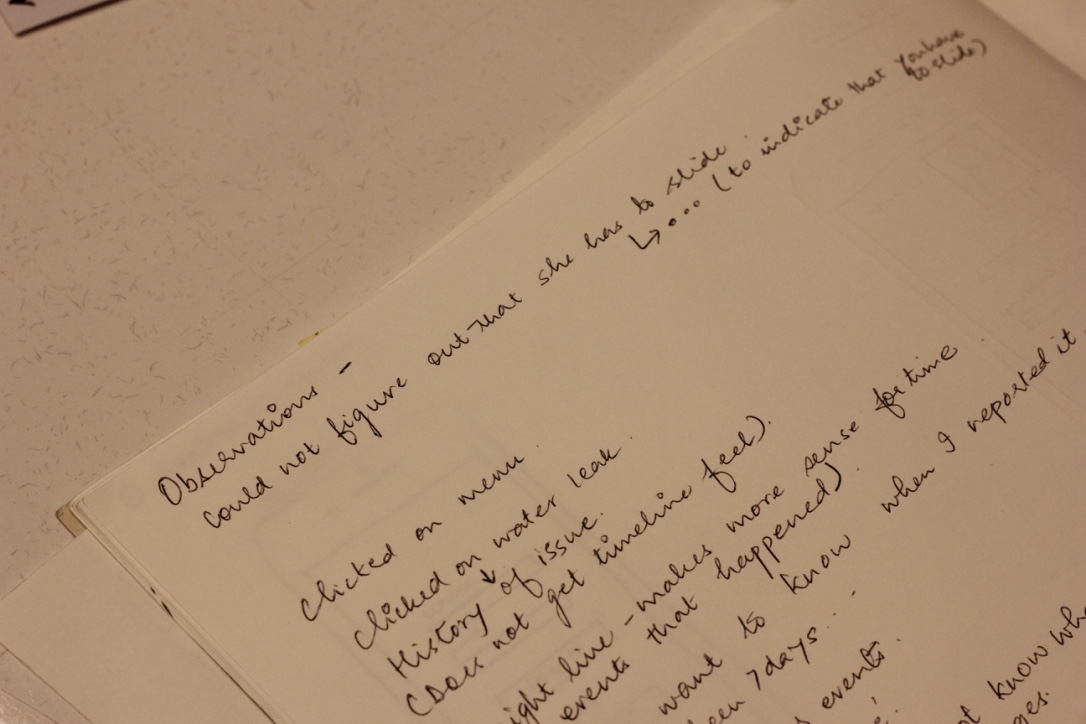 Observations -
could not figure out that she has to slide.
↳ ••• (to indicate that you have
to slide)
Clicked on menu.
Clicked on water leak.
↓
History of issue.
(Does not get timeline feel).
ight line - makes more sense for time.
events that happened).
want to know when I reported it
7 days...
events.
know